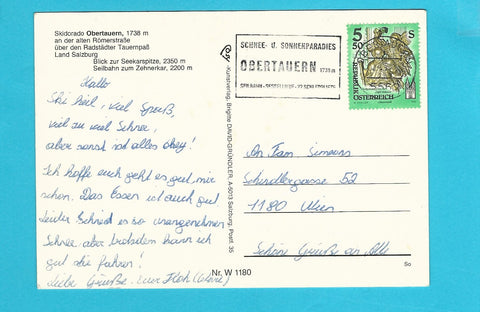 Skidorado Obertauern, 1738 m
an der alten Römerstraße
über den Radstädter Tauernpaß
Land Salzburg
Blick zur Seekarspitze, 2350 m
Seilbahn zum Zehnerkar, 2200 m
Hallo
Ski heil, viel Spaß,
viel zu viel Schnee,
aber sonst ist alles okey!
Ich hoffe euch geht es gut, mir
schon. Das Essen ist auch gut
leider Schneit es so unangenehmen
Schnee. aber trotzdem kann ich
gut Ski fahren!
Liebe Grüße. euer
Kunstverlag, Brigitte DAVID-GRÜNDLER, A-5013 Salzburg, Postf. 35
SCHNEE- U. SONNENPARADIES
OBERTAUERN 1738m
5 50 S
REPUBLIK
ÖSTERREICH
An Fam.
Schindlergasse 52
1180 Wien
Schöne Grüße an Alle
Nr. W 1180
So